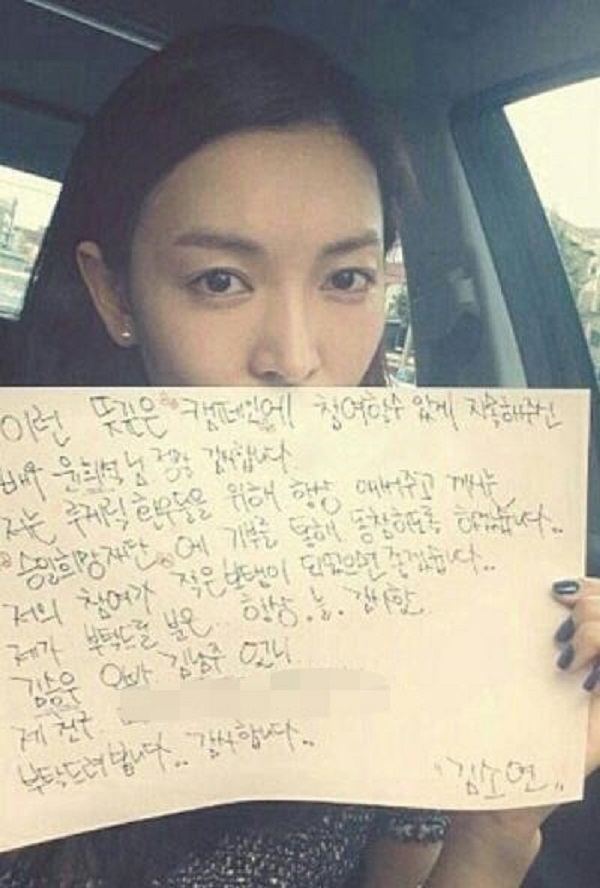 이런 뜻깊은 캠페인에 참여할수 있게 지목해주신
배우 윤희석님 정말 감사합니다.
저는 루게릭 환우들을 위해 항상 애써주고 계시는
승일희망재단 에 기부를 통해 동참하도록 하겠습니다..
저의 참여가 적은 보탬이 되었으면 좋겠습니다..
제가 부탁드릴 분은 항상.늘.감사한
김승우 오빠 김남주 언니
제 친구
부탁드려봅니다.. 감사합니다..
"김소연"